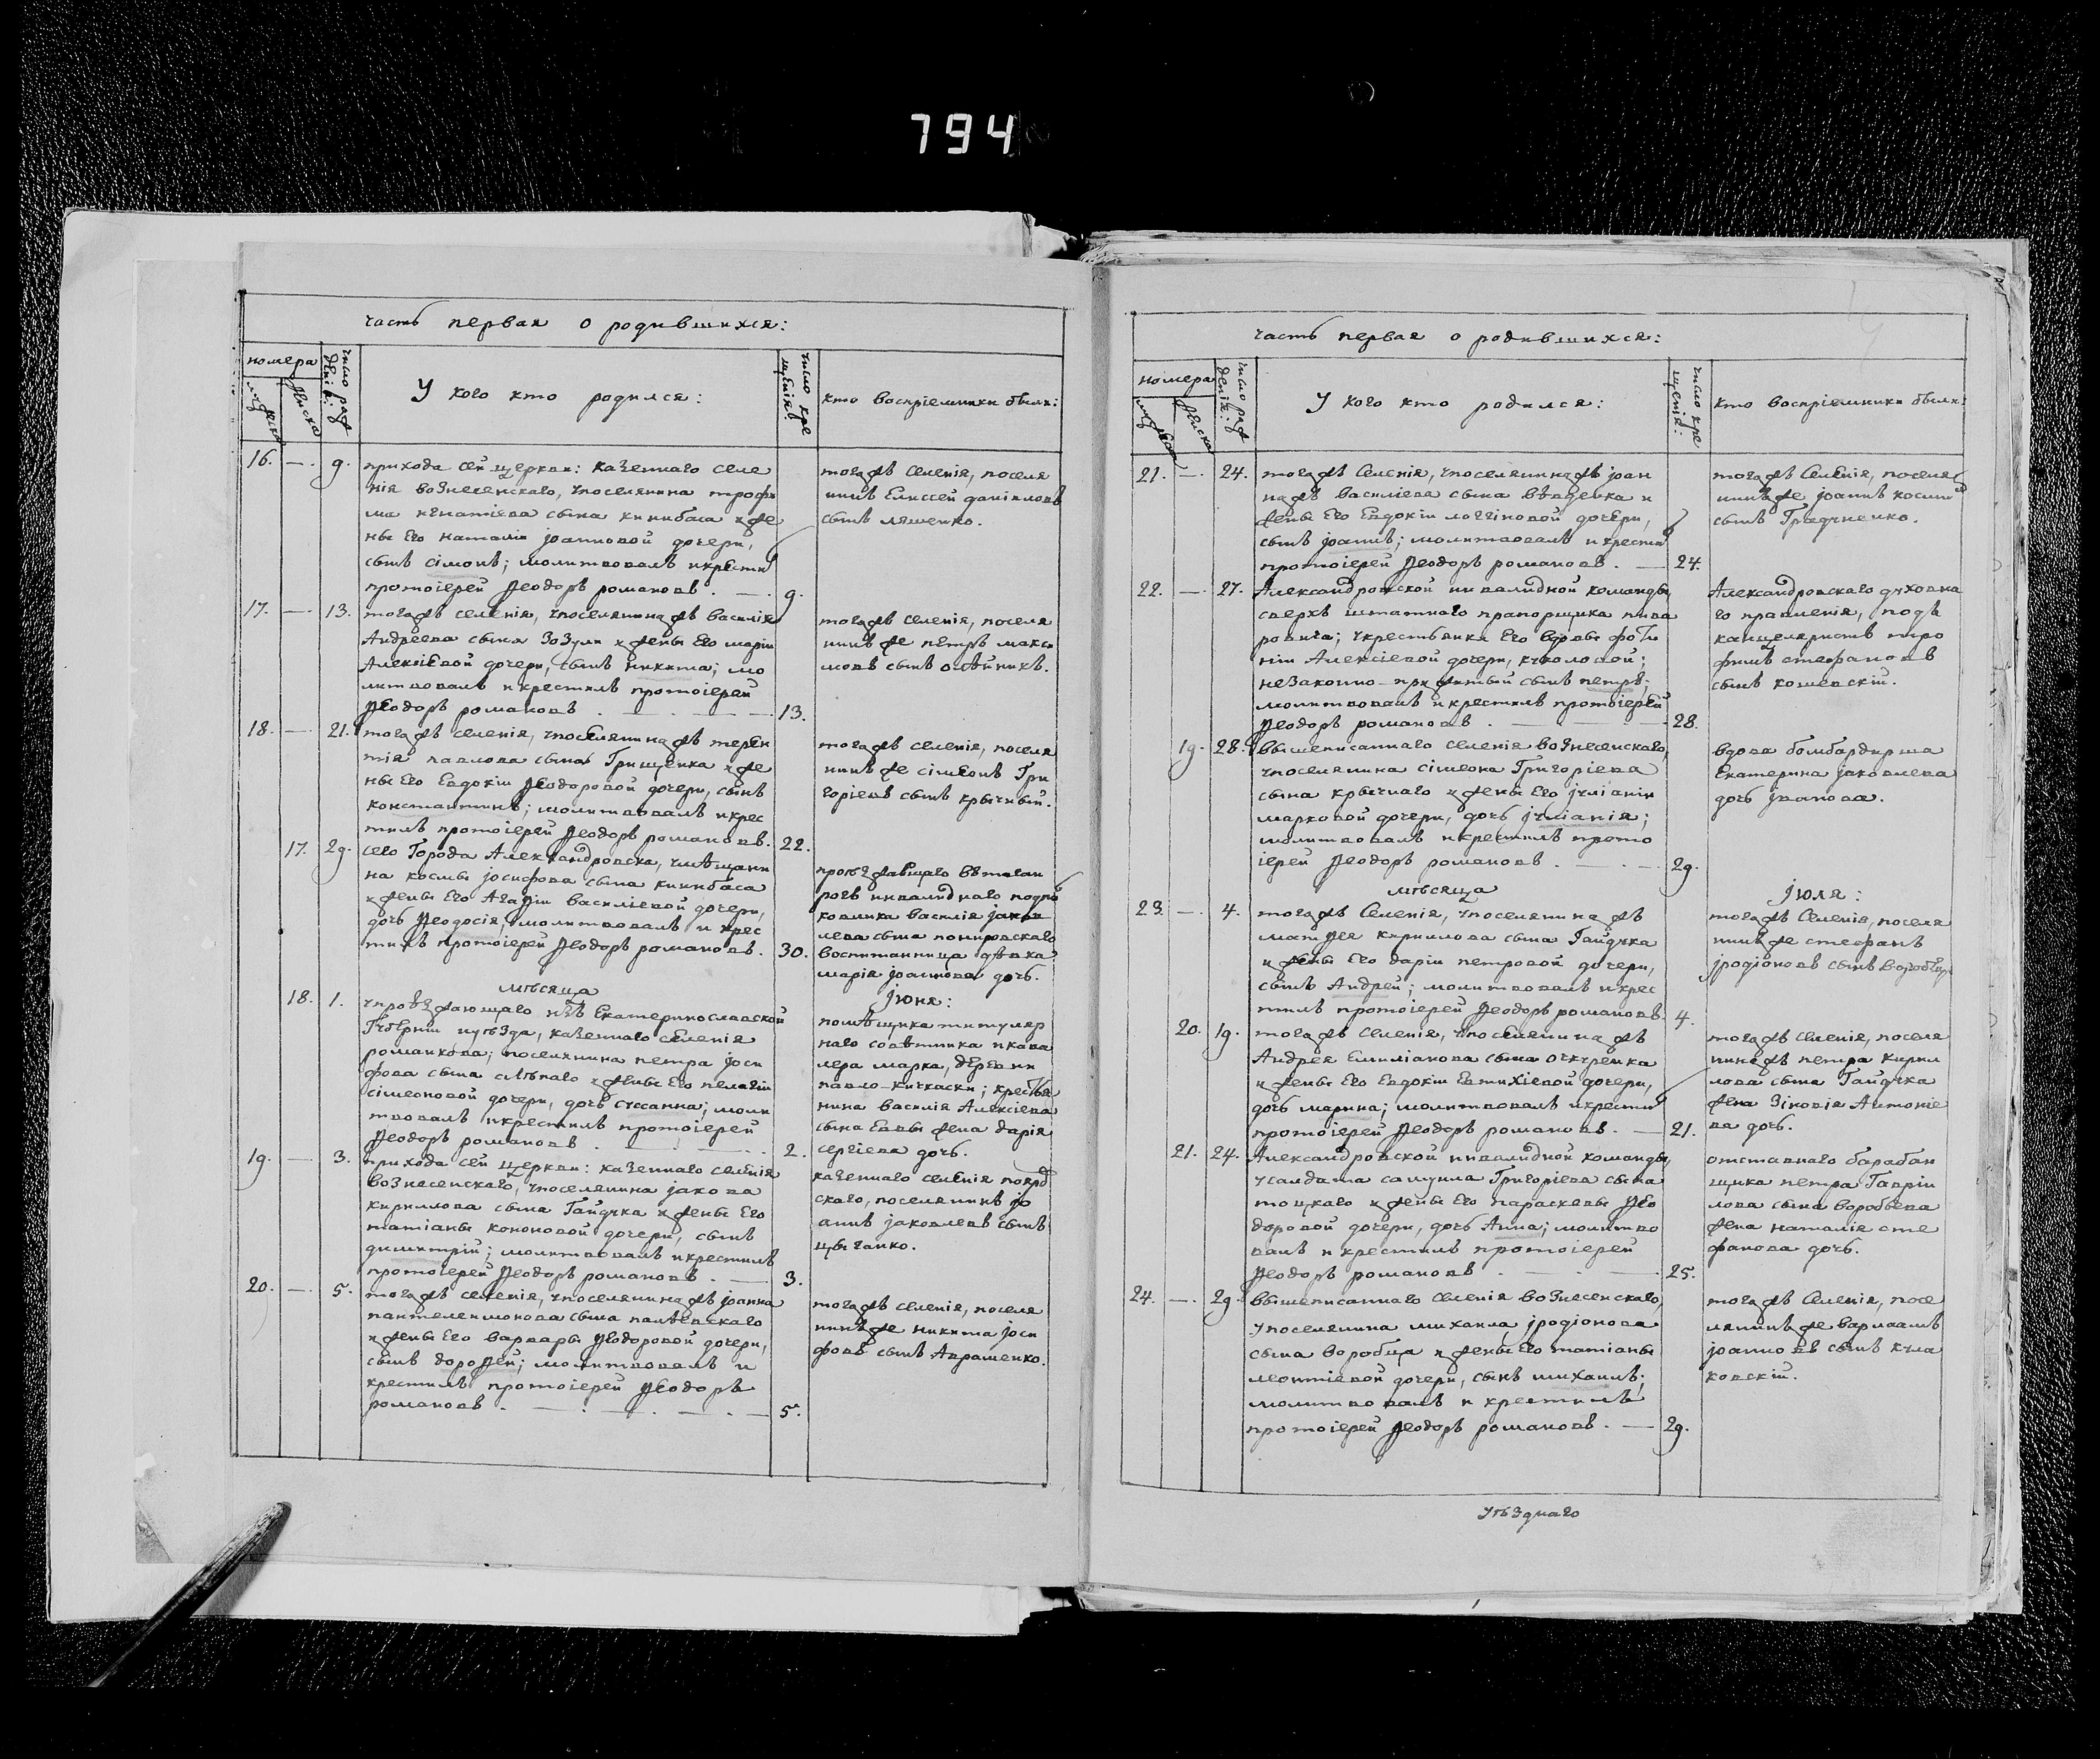 794
часть первая о родившихся:
номера
муж еска
женска
число рож денія:
У кого кто родился:
число кре щенія
кто воспріемники были:
16. — 9. прихода сей церкви: казеннаго селе
нія вознесенскаго, упоселянина трофи
ма игнатіева сына книбаса и же
ны его наталіи іоанновой дочери,
сынъ сімонъ; молитвовалъ икрестил
протоіерей Ѳеодоръ романовъ. — 9.
тогажъ селенія, поселя
нинъ Елиссей даніиловъ
сынъ ляшенко.
17. — 13. тогажъ селенія, упоселянинажъ василія
Андреева сына Зозули и жены Его маріи
Алексіевой дочери, сынъ никита; мо
литвовалъ икрестилъ протоіерей
Ѳеодоръ романовъ. — 13.
тогажъ селенія, поселя
нинъ же петръ макси
мовъ сынъ олѣйникъ.
18. — 21. тогажъ селенія, упоселянинажъ терен
тія павлова сына Грищенка и же
ны Его Евдокіи Ѳеодоровой дочери, сынъ
константинъ; молитвовалъ икрес
тилъ протоіерей Ѳеодоръ романовъ. 22.
тогажъ селенія, поселя
нинъ же сімеонъ Гри
горіевъ сынъ крычный.
17. 29. сего Города Александровска, умѣщани
на космы іосифова сына книбаса
и жены Его Агафіи василіевой дочери,
дочь Ѳеодосія; молитвовалъ и крес
тилъ протоіерей Ѳеодоръ романовъ. 30.
проѣзжавшаго втаган
рогъ инвалиднаго подпол
ковника василія іаков
лева сына понировскаго
воспитанница дѣвка
марія іоаннова дочь.
мѣсяца
іюня:
18. 1. упроѣзжающаго изъ Екатеринославской
Губерніи иуѣзда, казеннаго селенія
романкова; поселянина петра іоси
фова сына слѣпаго и жены Его пелагіи
сімеоновой дочери, дочь сусанна; моли
твовалъ икрестилъ протоіерей
Ѳеодоръ романовъ. — 2.
помѣщика титуляр
наго совѣтника икава
лера марка, деревни
павло-кичкаски; крестья
нина василія Алексіева
сына Еввы жена дарія
сергіева дочь.
19. — 3. прихода сей церкви: казеннаго селенія
вознесенскаго, упоселянина іакова
кирилова сына Гайдука и жены Его
татіаны кононовой дочери, сынъ
димитрій; молитвовалъ икрестилъ
протоіерей Ѳеодоръ романовъ. — 3.
казеннаго селенія покров
скаго, поселянинъ іо
аннъ іаковлевъ сынъ
цыганко.
20. — 5. тогажъ селенія, упоселянинажъ іоанна
пантелеимонова сына палѣевскаго
и жены Его варвары Ѳеодоровой дочери,
сынъ дороѳей; молитвовалъ и
крестилъ протоіерей Ѳеодоръ
романовъ. — 5.
тогажъ селенія, поселя
нинъ же никита іоси
фовъ сынъ Авраменко.
часть первая о родившихся:
номера
женска
число рож денія:
У кого кто родился:
число кре щенія:
кто воспріемники были:
21. — 24. тогажъ Селенія, упоселянинажъ іоан
нажъ василіева сына въ
жены Его Евдокіи логгіновой дочери,
сынъ іоаннъ; молитвовалъ икрестил
протоіерей Ѳеодоръ романовъ. — 24.
тогажъ Селенія, поселя
нинъ же іоаннъ косми
сынъ
22. — 27. Александровской инвалидной команды,
сверхъ штатнаго прапорщика пива
ровича; укрестьянки Его вдовы фоти
ніи Алексіевой дочери, куколовой;
незаконно-прижитый сынъ петръ;
молитвовалъ икрестилъ протоіерей
Ѳеодоръ романовъ. — 28.
Александровскаго духовна
го правленія, подъ
канцеляристъ тро
фимъ стефановъ
сынъ кошевскій.
19. 28. вышеписаннаго селенія вознесенскаго,
упоселянина сімеона Григоріева
сына крычнаго и жены Его іуліаніи
марковой дочери, дочь іуліанія;
молитвовалъ икрестилъ прото
іерей Ѳеодоръ романовъ. — 29.
вдова бомбардирша
Екатерина іаковлева
дочь іванова.
мѣсяца
іюля:
23. — 4. тогажъ Селенія, упоселянинажъ
матѳея кирилова сына Гайдука
и жены Его даріи петровой дочери,
сынъ Андрей; молитвовалъ икрес
тилъ протоіерей Ѳеодоръ романовъ. 4.
тогажъ Селенія, поселя
нинъ же стефанъ
іродіоновъ сынъ воробец
20. 19. тогажъ селенія, упоселянинажъ
Андрея Емиліанова сына очкуренка
и жены Его Евдокіи Евтихіевой дочери,
дочь марина; молитвовалъ икрестил
протоіерей Ѳеодоръ романовъ. — 21.
тогажъ селенія, поселя
нинажъ петра кирил
лова сына Гайдука
жена Зіновія Антоніе
ва дочь.
21. 24. Александровской инвалидной команды,
усалдата самуила Григоріева сына
тоцкаго и жены Его параскевы Ѳео
доровой дочери, дочь Анна; молитво
валъ и крестилъ протоіерей
Ѳеодоръ романовъ. — 25.
отставнаго барабан
щика петра Гавріи
лова сына воробьева
жена наталія сте
фанова дочь.
24. — 29. вышеписаннаго селенія вознесенскаго,
упоселянина михаила іродіонова
сына воробца и жены Его татіаны
леонтіевой дочери, сынъ михаилъ;
молитвовалъ и крестилъ
протоіерей Ѳеодоръ романовъ. — 29.
тогажъ Селенія, посе
лянинъ же варлаамъ
іоанновъ сынъ кула
ковскій.
уѣзднаго